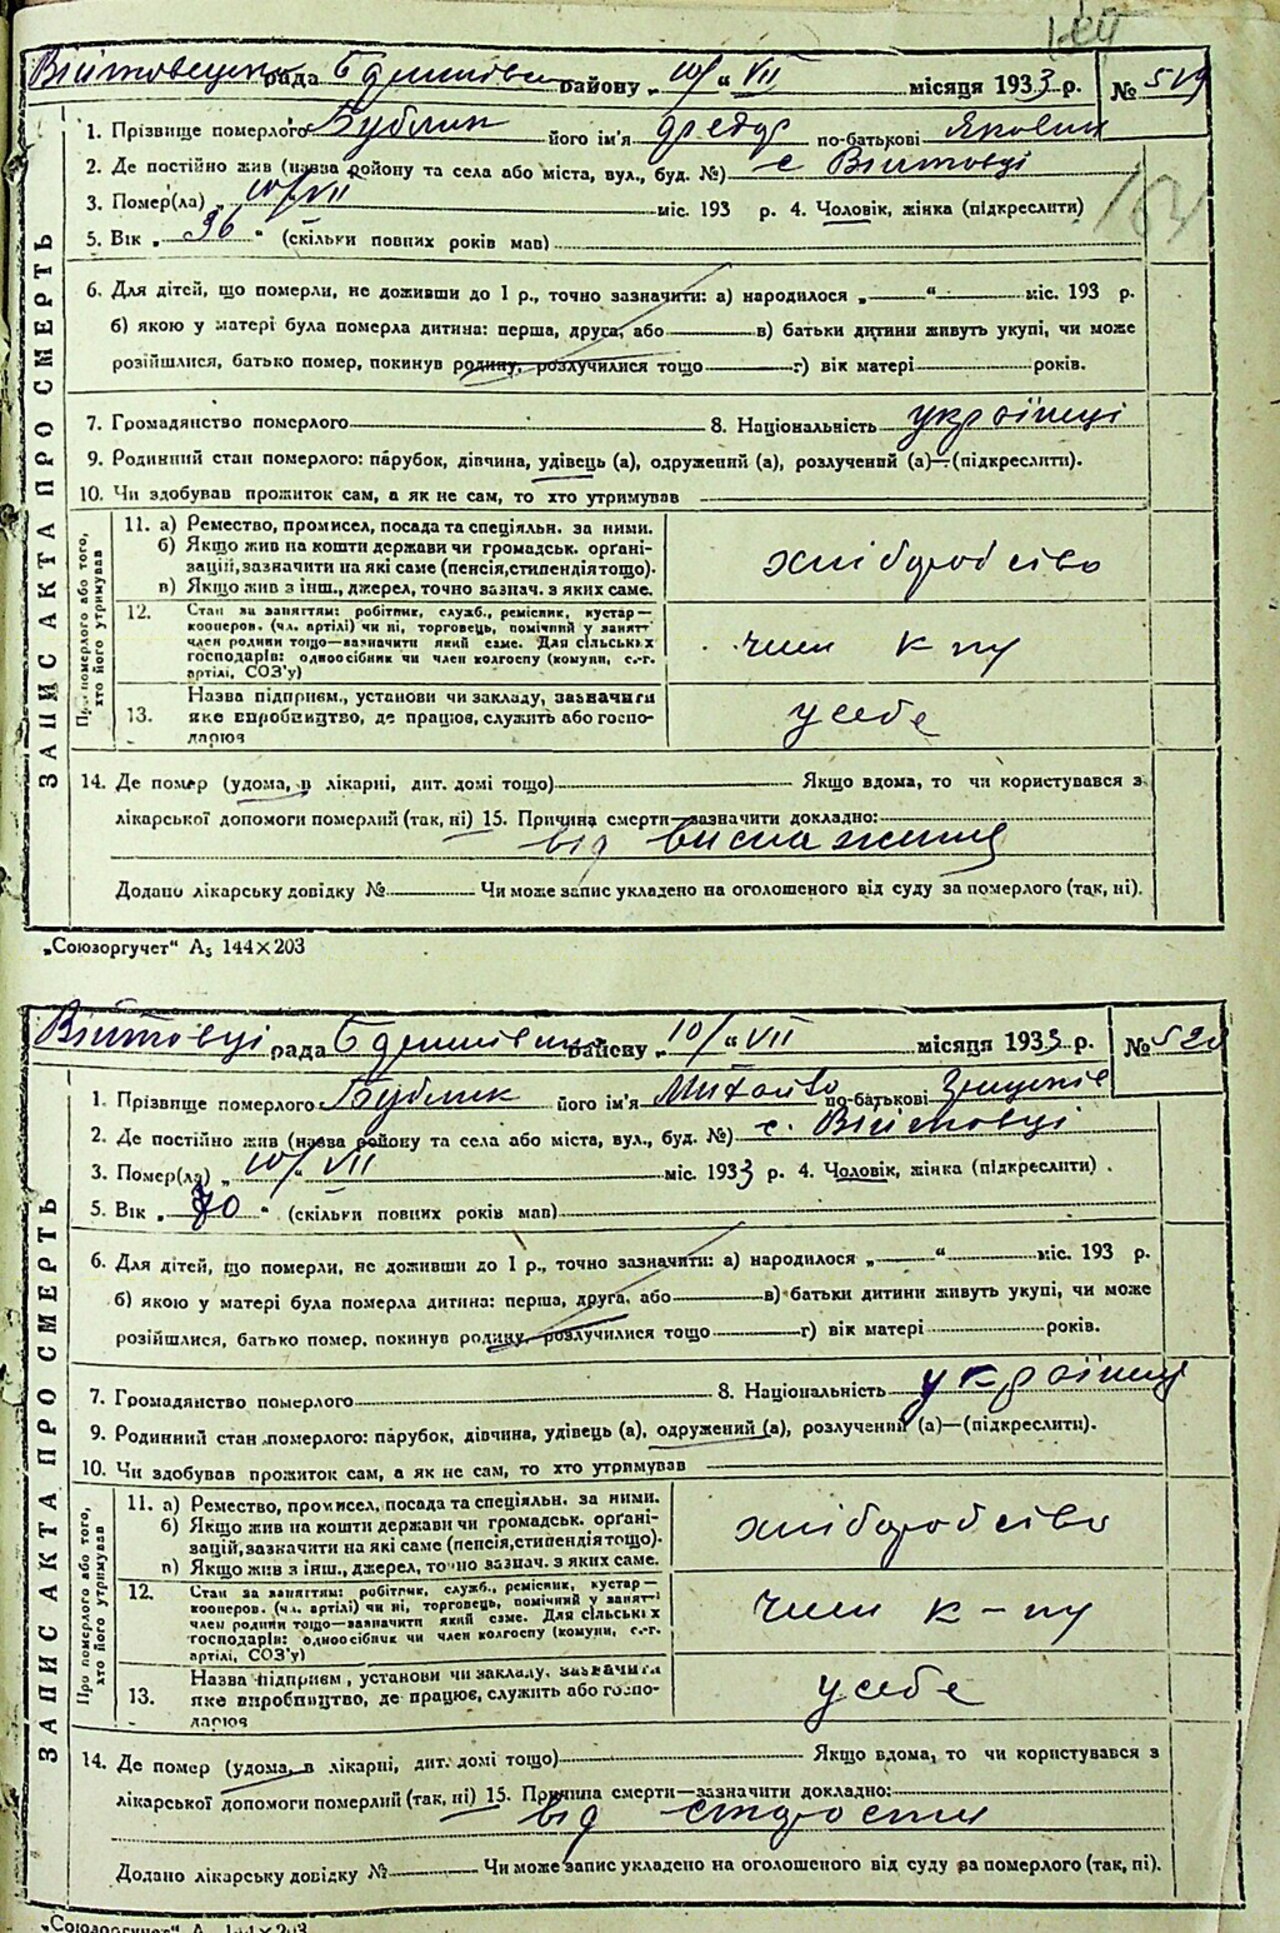 рада району „10/“ VII місяця 1933 р. № 519
1. Прізвище померлого Бублик його ім'я Федір по-батькові Якович
2. Де постійно жив (назва району та села або міста, вул., буд. №) с Війтовці
3. Помер(ла) „10/“ VII міс. 193 р. 4. Чоловік, жінка (підкреслити)
5. Вік „36“ (скільки повних років мав)
6. Для дітей, що померли, не доживши до 1 р., точно зазначити: а) народилося „ “ міс. 193 р.
б) якою у матері була померла дитина: перша, друга, або в) батьки дитини живуть укупі, чи може
розійшлися, батько помер, покинув родину, розлучилися тощо г) вік матері років.
7. Громадянство померлого 8. Національність українці
9. Родинний стан померлого: парубок, дівчина, удівець (а), одружений (а), розлучений (а)—(підкреслити).
10. Чи здобував прожиток сам, а як не сам, то хто утримував
Про померлого або того, хто його утримував
11. а) Ремество, промисел, посада та спеціяльн. за ними.
б) Якщо жив на кошти держави чи громадськ. орґані-
зацій, зазначити на які саме (пенсія, стипендія тощо).
в) Якщо жив з інш., джерел, точно зазнач. з яких саме.
хліборобство
12. Стан за заняттям: робітник, служб., ремісник, кустар—
кооперов. (чл. артілі) чи ні, торговець, помічний у занятт
член родини тощо—зазначити який саме. Для сільських
господарів: одноосібник чи член колгоспу (комуни, с.-г.
артілі, СОЗ'у)
член к пу
13. Назва підприєм., установи чи закладу, зазначити
яке виробництво, де працює, служить або госпо-
дарює
у себе
14. Де помер (удома, в лікарні, дит. домі тощо) Якщо вдома, то чи користувався з
лікарської допомоги померлий (так, ні) 15. Причина смерти—зазначити докладно:
від виснаження
Додано лікарську довідку № Чи може запис укладено на оголошеного від суду за померлого (так, ні).
ЗАПИС АКТА ПРО СМЕРТЬ
„Союзоргучет“ А5 144×203
Війтовці рада району „10/“ VII місяця 1933 р. № 520
1. Прізвище померлого Бублик його ім'я Михайло по-батькові
2. Де постійно жив (назва району та села або міста, вул., буд. №) с. Війтовці
3. Помер(ла) „10/“ VII міс. 1933 р. 4. Чоловік, жінка (підкреслити).
5. Вік „70“ (скільки повних років мав)
6. Для дітей, що померли, не доживши до 1 р., точно зазначити: а) народилося „ “ міс. 193 р.
б) якою у матері була померла дитина: перша, друга, або в) батьки дитини живуть укупі, чи може
розійшлися, батько помер, покинув родину, розлучилися тощо г) вік матері років.
7. Громадянство померлого 8. Національність українці
9. Родинний стан померлого: парубок, дівчина, удівець (а), одружений (а), розлучений (а)—(підкреслити).
10. Чи здобував прожиток сам, а як не сам, то хто утримував
Про померлого або того, хто його утримував
11. а) Ремество, промисел, посада та спеціяльн. за ними.
б) Якщо жив на кошти держави чи громадськ. орґані-
зацій, зазначити на які саме (пенсія, стипендія тощо).
в) Якщо жив з інш., джерел, точно зазнач. з яких саме.
хліборобство
12. Стан за заняттям: робітник, служб., ремісник, кустар—
кооперов. (чл. артілі) чи ні, торговець, помічний у занятт
член родини тощо—зазначити який саме. Для сільських
господарів: одноосібник чи член колгоспу (комуни, с.-г.
артілі, СОЗ'у)
член к-пу
13. Назва підприєм., установи чи закладу, зазначити
яке виробництво, де працює, служить або госпо-
дарює
у себе
14. Де помер (удома, в лікарні, дит. домі тощо) Якщо вдома, то чи користувався з
лікарської допомоги померлий (так, ні) 15. Причина смерти—зазначити докладно:
від старости
Додано лікарську довідку № Чи може запис укладено на оголошеного від суду за померлого (так, ні).
ЗАПИС АКТА ПРО СМЕРТЬ
„Союзоргучет“ А 144×203